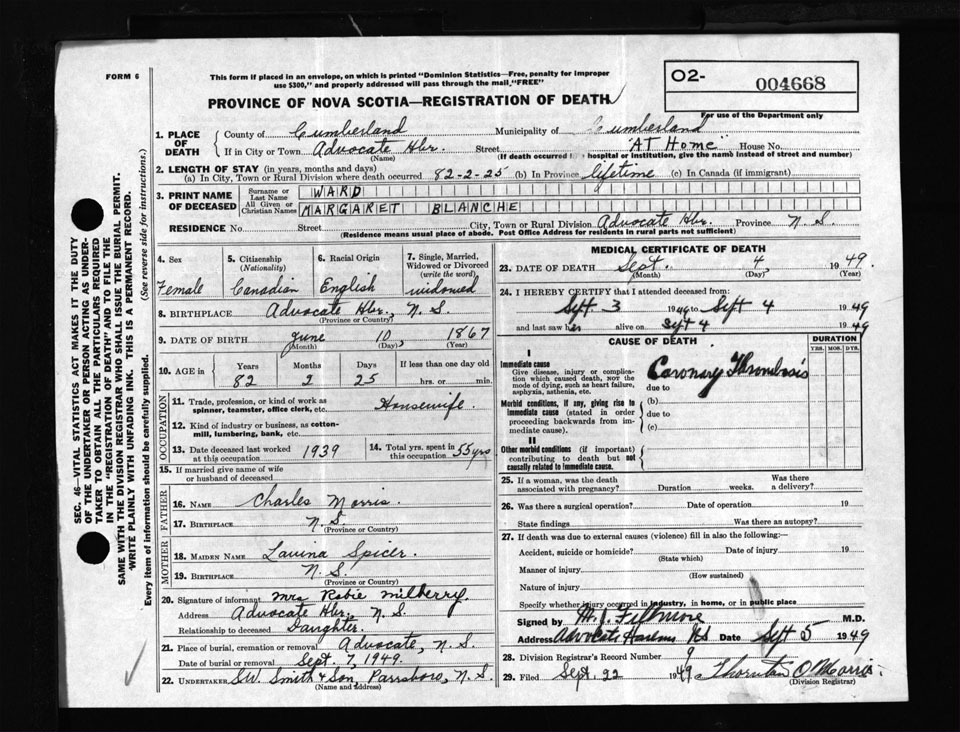 FORM 6
This form if placed in an envelope, on which is printed "Dominion Statistics—Free, penalty for improper
use $300," and properly addressed will pass through the mail, "FREE"
PROVINCE OF NOVA SCOTIA—REGISTRATION OF DEATH
O2- 004668
For use of the Department only
1. PLACE OF DEATH { County of Cumberland Municipality of Cumberland
If in City or Town Advocate Hbr. Street "AT Home" House No.
(Name) (If death occurred in a hospital or institution, give the name instead of street and number)
2. LENGTH OF STAY (in years, months and days)
(a) In City, Town or Rural Division where death occurred 82-2-25 (b) In Province lifetime (c) In Canada (if immigrant)
3. PRINT NAME OF DECEASED { Surname or Last Name WARD
All Given or Christian Names MARGARET BLANCHE
RESIDENCE No. Street City, Town or Rural Division Advocate Hbr. Province N. S.
(Residence means usual place of abode. Post Office Address for residents in rural parts not sufficient)
4. Sex Female
5. Citizenship (Nationality) Canadian
6. Racial Origin English
7. Single, Married, Widowed or Divorced (write the word) widowed
8. BIRTHPLACE Advocate Hbr., N. S.
(Province or Country)
9. DATE OF BIRTH June 10 1867
(Month) (Day) (Year)
10. AGE in { Years Months Days If less than one day old
82 2 25 hrs. or min.
OCCUPATION
11. Trade, profession, or kind of work as
spinner, teamster, office clerk, etc. Housewife.
12. Kind of industry or business, as cotton-
mill, lumbering, bank, etc.
13. Date deceased last worked at this occupation 1939
14. Total yrs. spent in this occupation 55 yrs
15. If married give name of wife
or husband of deceased
FATHER
16. NAME Charles Morris.
17. BIRTHPLACE N. S.
(Province or Country)
MOTHER
18. MAIDEN NAME Lavina Spicer.
19. BIRTHPLACE N. S.
(Province or Country)
20. Signature of informant Mrs Robie Milberry.
Address Advocate Hbr. N. S.
Relationship to deceased Daughter.
21. Place of burial, cremation or removal Advocate, N. S.
Date of burial or removal Sept. 7, 1949.
22. UNDERTAKER S.W. Smith & Son, Parrsboro, N. S.
(Name and Address)
MEDICAL CERTIFICATE OF DEATH
23. DATE OF DEATH Sept. 4 1949.
(Month) (Day) (Year)
24. I HEREBY CERTIFY that I attended deceased from:
Sept. 3 1949 to Sept 4 1949
and last saw her alive on Sept 4 1949
CAUSE OF DEATH DURATION
YRS. MOS. DYS.
I
Immediate cause Coronary Thrombosis
Give disease, injury or complica-
tion which caused death, NOT the
mode of dying, such as heart failure,
asphyxia, asthenia, etc.
due to
Morbid conditions, if any, giving rise to
immediate cause (stated in order
proceeding backwards from im-
mediate cause).
(b)
due to
(c)
II
Other morbid conditions (if important)
contributing to death but not
causally related to immediate cause.
25. If a woman, was the death
associated with pregnancy? Duration weeks. Was there a delivery?
26. Was there a surgical operation? Date of operation 19
State findings Was there an autopsy?
27. If death was due to external causes (violence) fill in also the following:
Accident, suicide or homicide? Date of injury 19
(State which)
Manner of injury
(How sustained)
Nature of injury
Specify whether injury occurred in industry, in home, or in public place
Signed by M. J. Fillmore M.D.
Address Advocate Harbour NS Date Sept 5 1949
28. Division Registrar's Record Number 9
29. Filed Sept. 22 1949 Thornton O Morris.
(Division Registrar)
SEC. 46—VITAL STATISTICS ACT MAKES IT THE DUTY
OF THE UNDERTAKER OR PERSON ACTING AS UNDER-
TAKER TO OBTAIN ALL THE PARTICULARS REQUIRED
IN THE "REGISTRATION OF DEATH" AND TO FILE THE
SAME WITH THE DIVISION REGISTRAR WHO SHALL ISSUE THE BURIAL PERMIT.
WRITE PLAINLY WITH UNFADING INK. THIS IS A PERMANENT RECORD.
Every item of information should be carefully supplied. (See reverse side for instructions.)